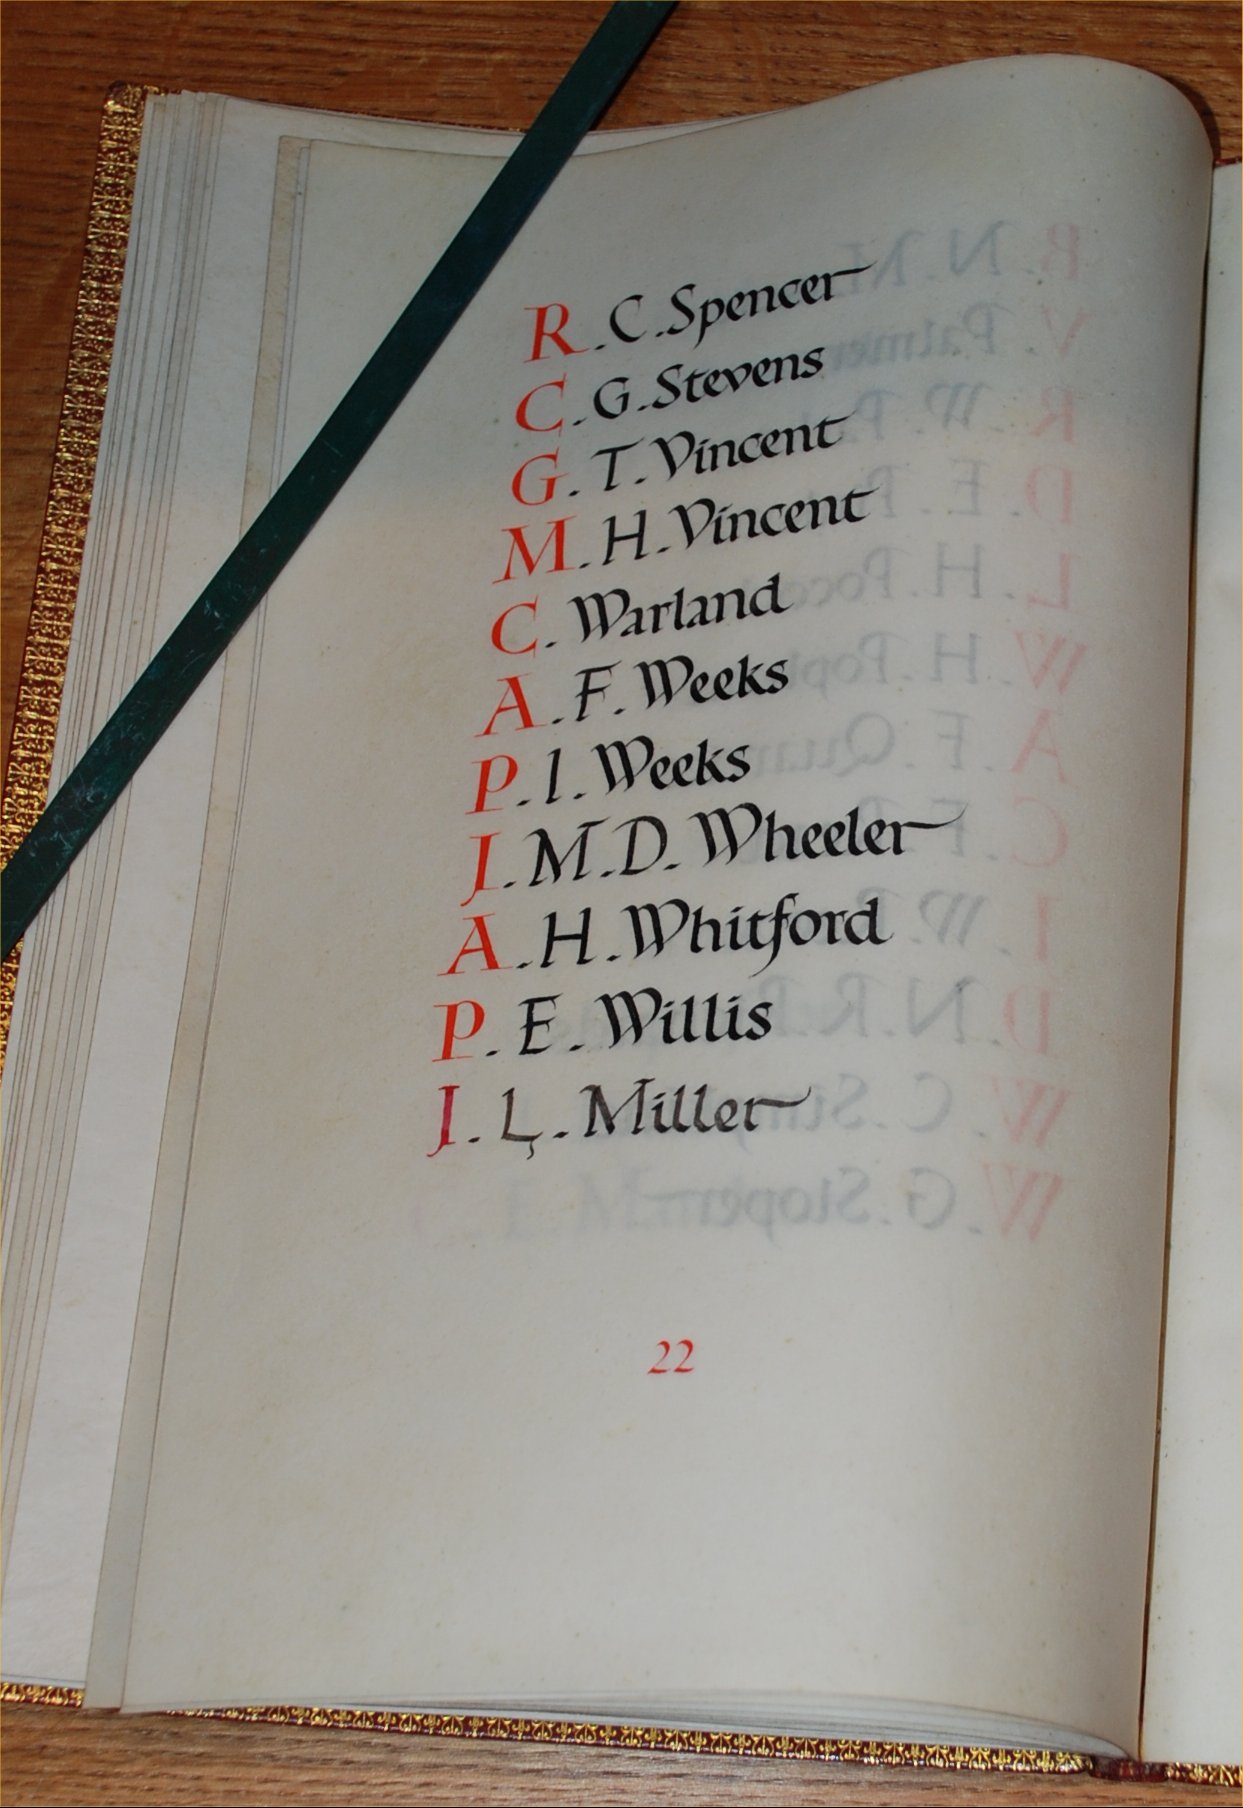 R. C. Spencer
C. G. Stevens
G. T. Vincent
M. H. Vincent
C. Warland
A. F. Weeks
P. I. Weeks
J. M. D. Wheeler
A. H. Whitford
P. E. Willis
J. L. Miller
22